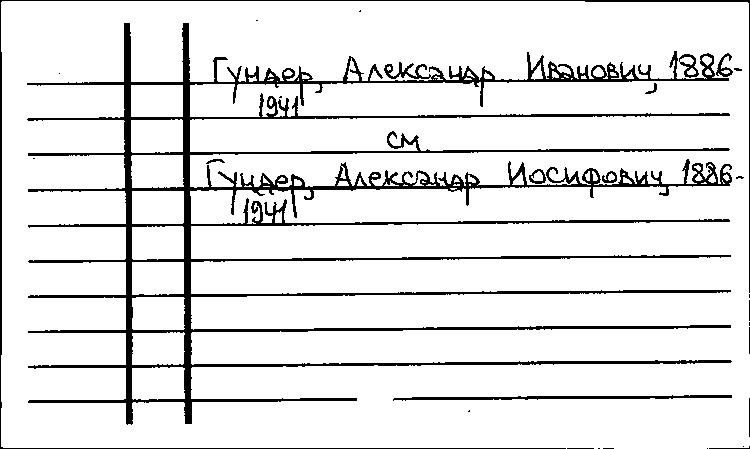 Гундер, Александр Иванович, 1886-
1941
см.
Гундер, Александр Иосифович, 1886-
1941